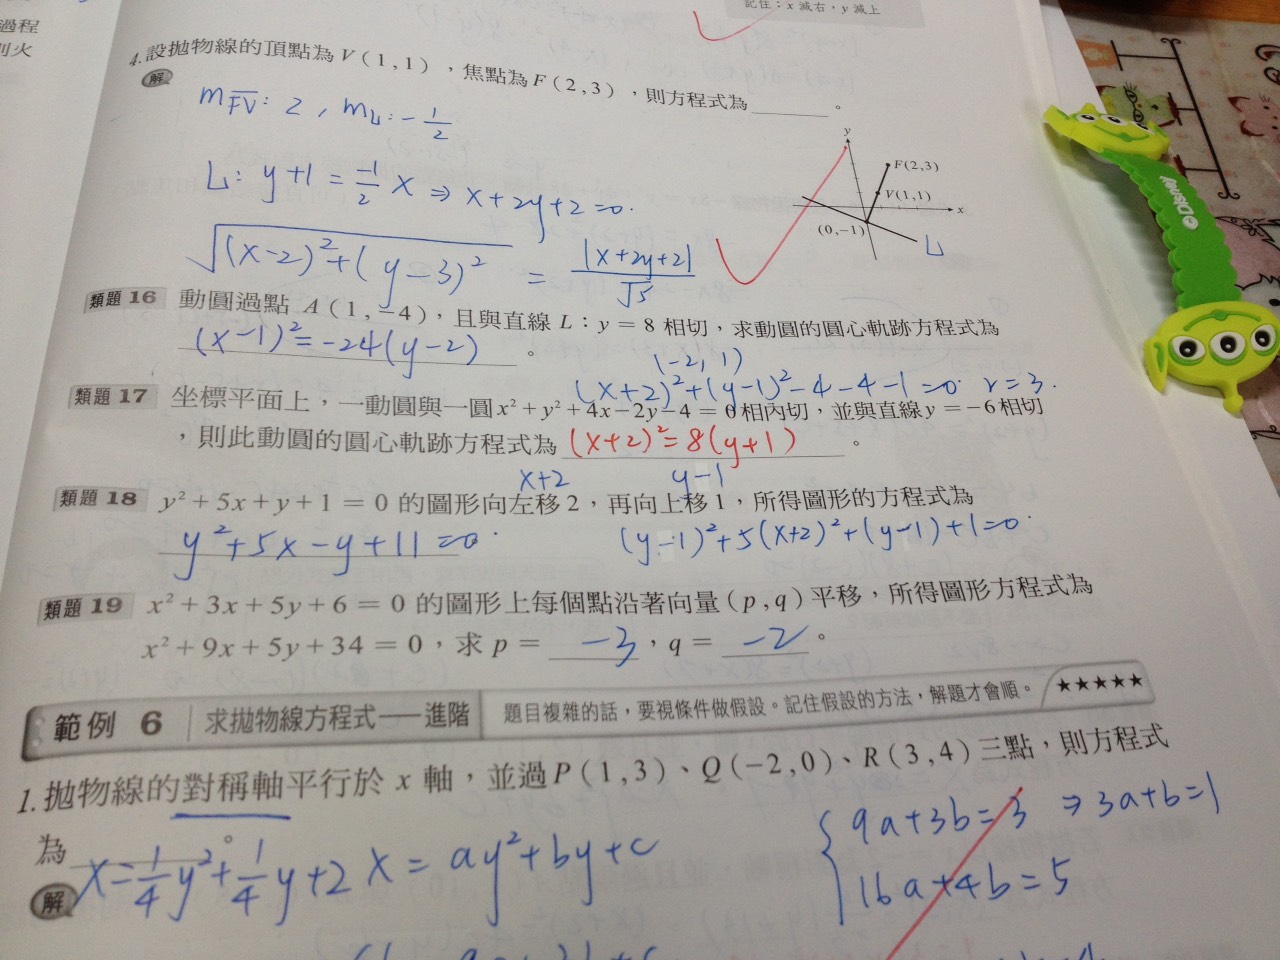 過程
別火
記住：x 減右，y 減上
4.設拋物線的頂點為V(1,1)，焦點為F(2,3)，則方程式為______。
解
m_FV: 2，m_L: -1/2
L: y+1 = -1/2 x ⇒ x+2y+2=0.
√((x-2)²+(y-3)²) = |x+2y+2|/√5
y
F(2,3)
V(1,1)
x
(0,-1)
L
DISNEY
類題 16 動圓過點 A(1,-4)，且與直線 L：y=8 相切，求動圓的圓心軌跡方程式為
(x-1)²=-24(y-2)。
(-2, 1)
(x+2)²+(y-1)²-4-4-1=0 r=3.
類題 17 坐標平面上，一動圓與一圓x²+y²+4x-2y-4=0相內切，並與直線y=-6相切
，則此動圓的圓心軌跡方程式為 (x+2)²=8(y+1)。
x+2 y-1
類題 18 y²+5x+y+1=0 的圖形向左移2，再向上移1，所得圖形的方程式為
y²+5x-y+11=0. (y-1)²+5(x+2)²+(y-1)+1=0.
類題 19 x²+3x+5y+6=0 的圖形上每個點沿著向量(p,q)平移，所得圖形方程式為
x²+9x+5y+34=0，求 p= -3，q= -2。
範例 6 求拋物線方程式──進階 題目複雜的話，要視條件做假設。記住假設的方法，解題才會順。 ★★★★★
1.拋物線的對稱軸平行於 x 軸，並過P(1,3)、Q(-2,0)、R(3,4)三點，則方程式
為______。
解
x=1/4y²+1/4y+2 x=ay²+by+c
9a+3b=3 ⇒3a+b=1
16a+4b=5